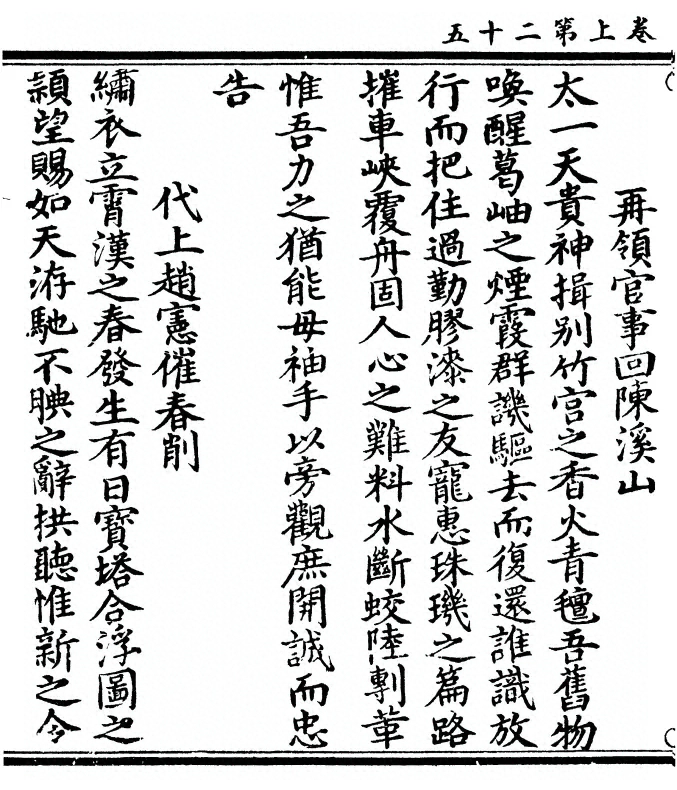 卷上第二十五
再領官事回陳溪山
太一天貴神揖别竹宫之香火青氊吾舊物
喚醒葛岫之煙霞群譏驅去而復還誰識放
行而把住過勤膠漆之友寵惠珠璣之篇路
摧車峽覆舟固人心之難料水斷蛟陸剸犀
惟吾力之猶能毋袖手以旁觀庶開誠而忠
告
代上趙憲催春削
繡衣立霄漢之春發生有日寳塔合浮圖之
頴望賜如天洊馳不腆之辭拱聽惟新之令